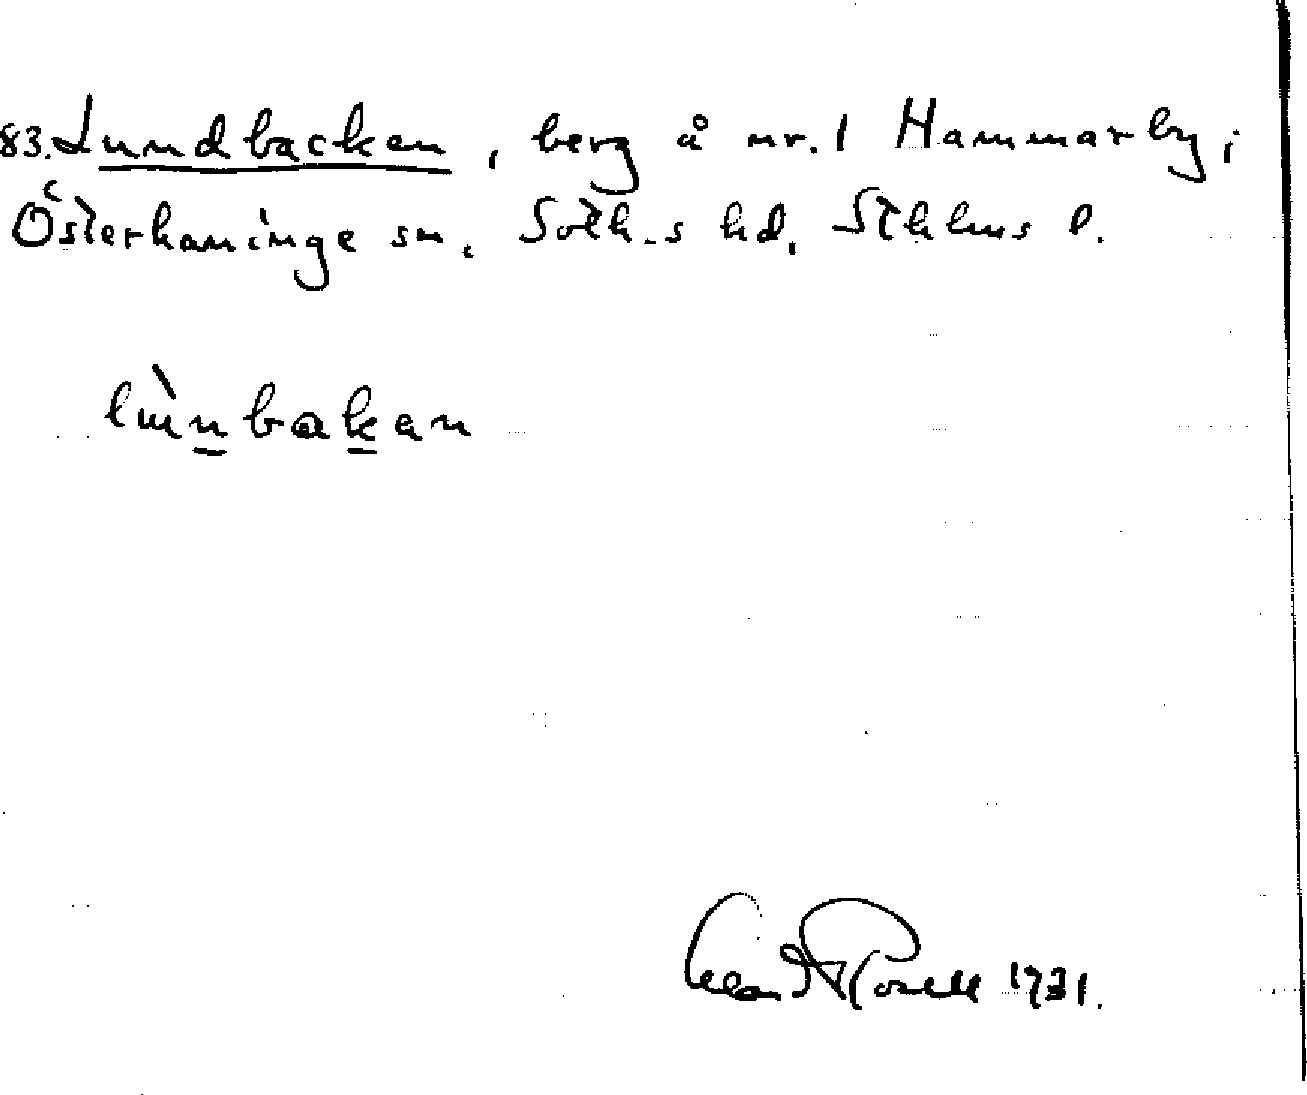 83. Lundbacken, berg å nr. 1 Hammarby,
Österhaninge sn. Soth-s hd. Sthlms l.
lùnbakan
1931.